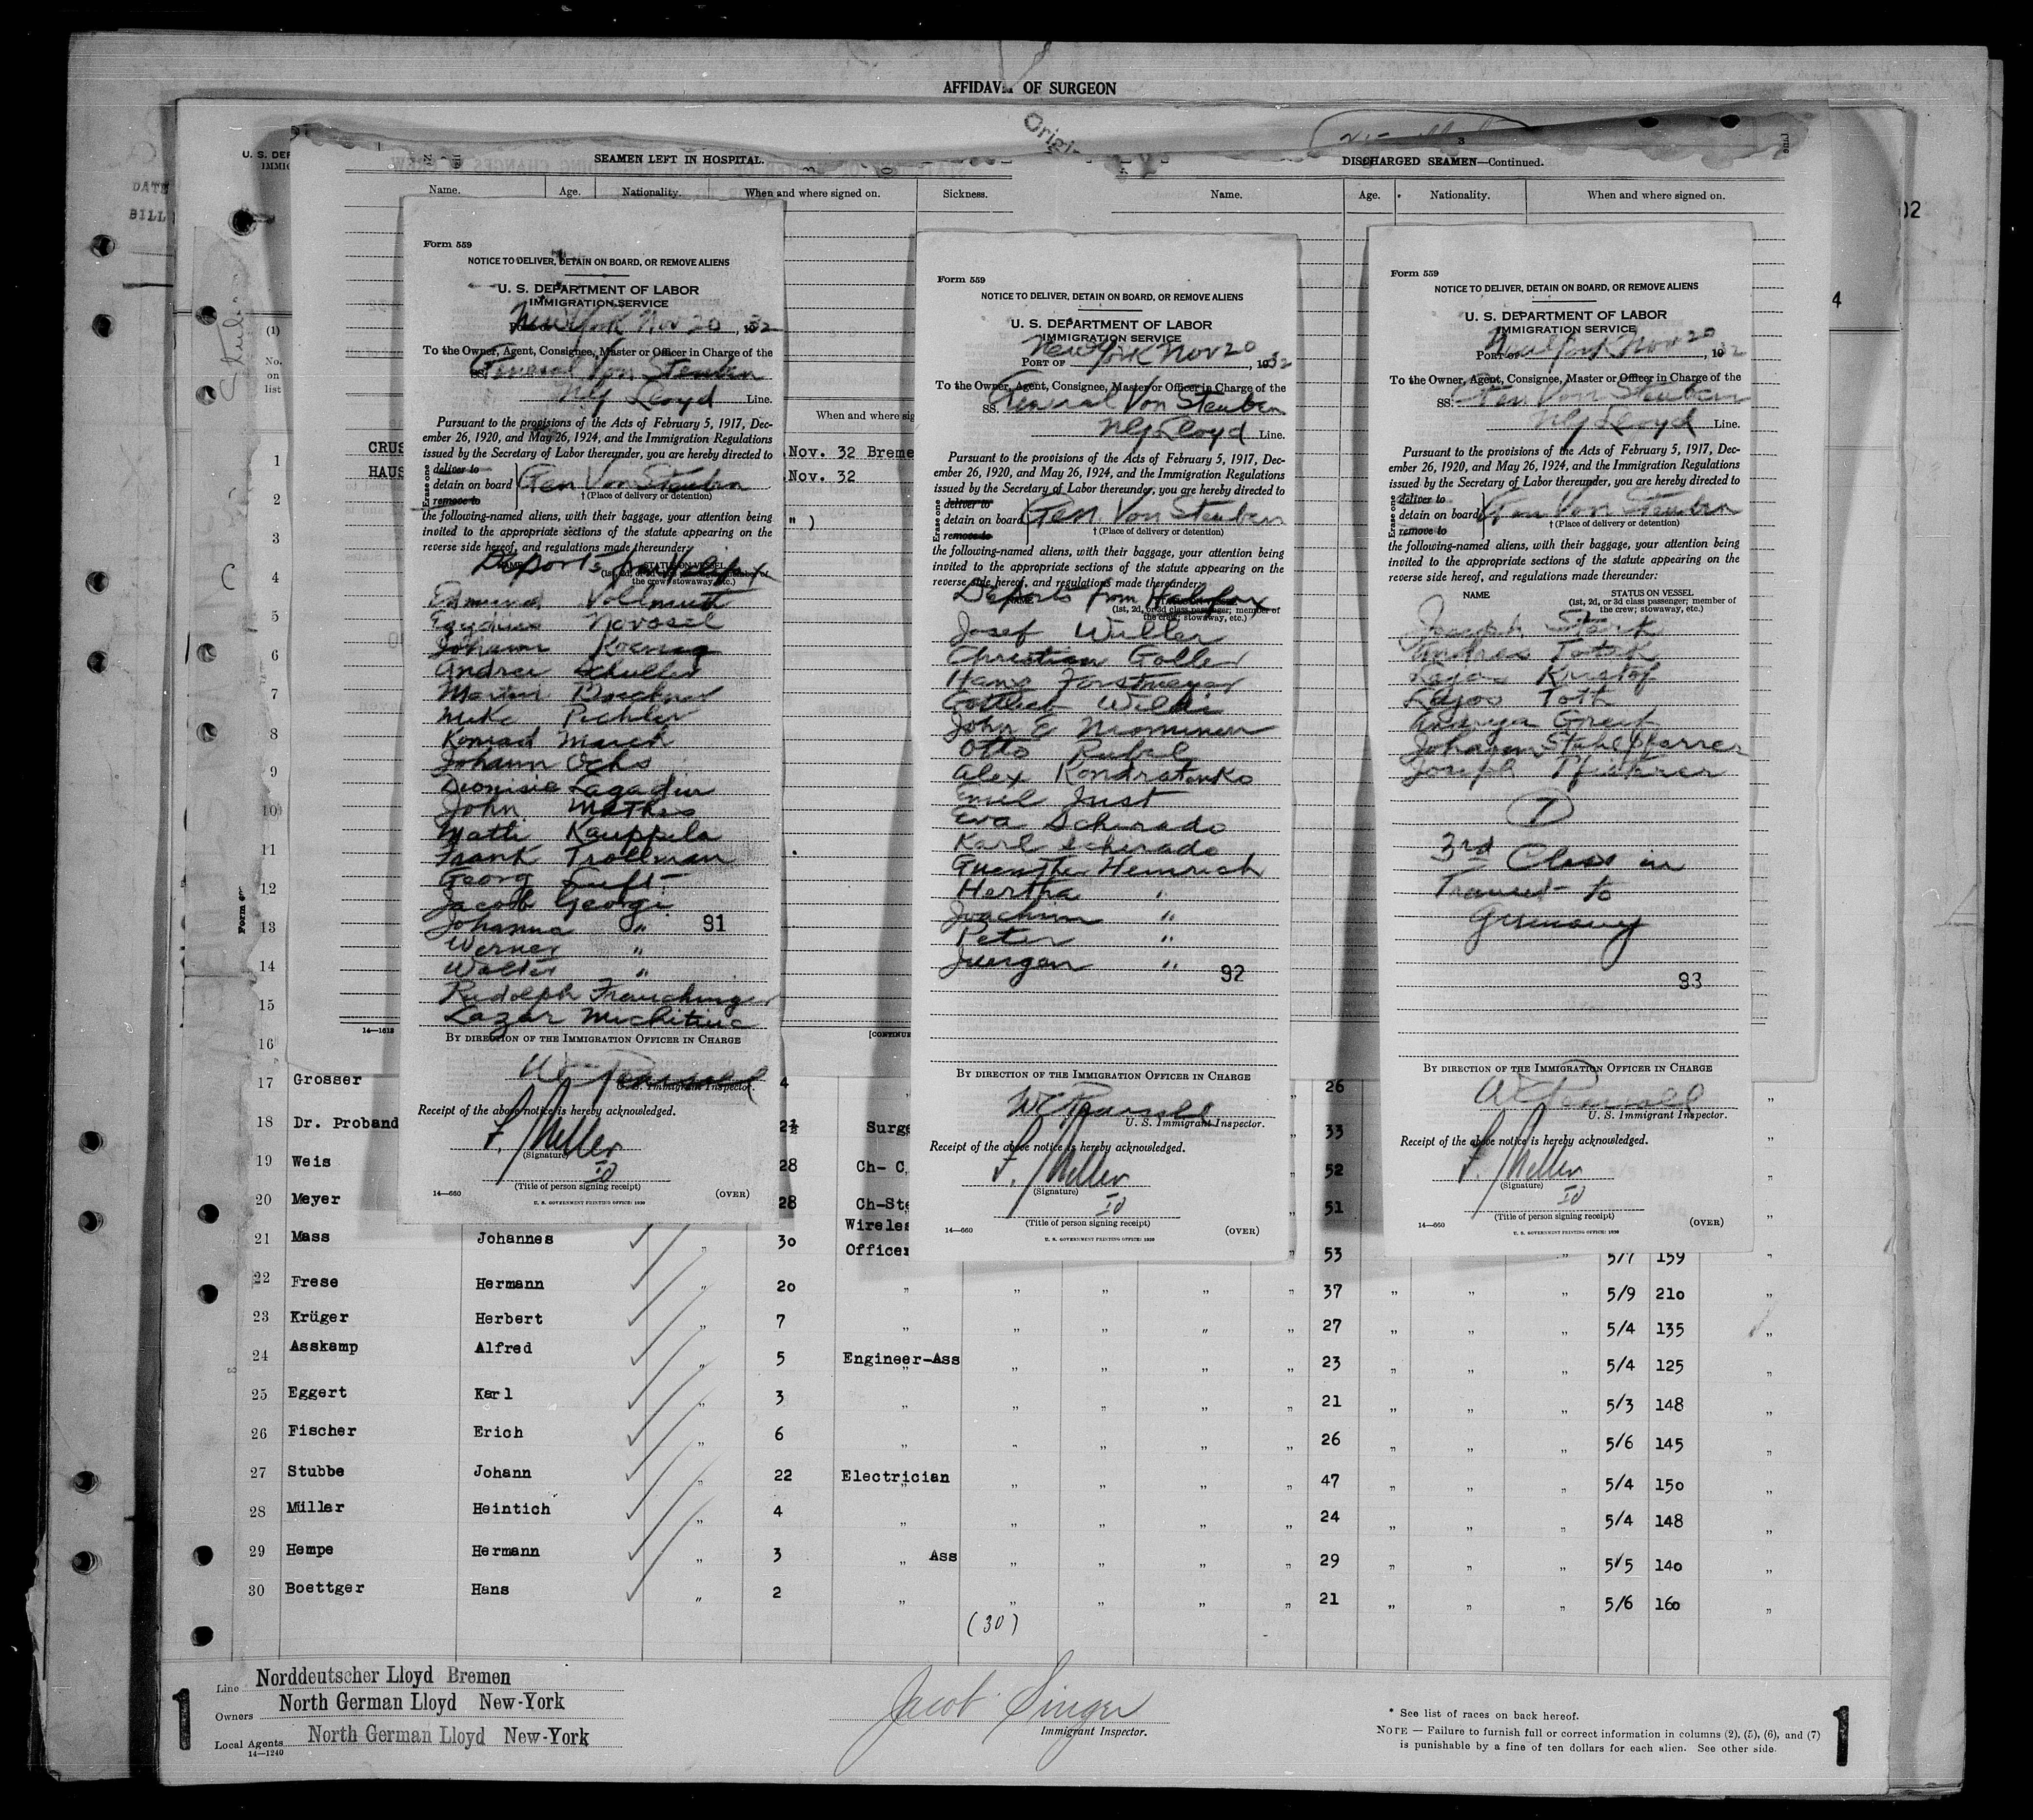 AFFIDAVIT OF SURGEON
SEAMEN LEFT IN HOSPITAL.
Name. Age. Nationality. When and where signed on. Sickness.
3
DISCHARGED SEAMEN—Continued.
Name. Age. Nationality. When and where signed on.
Form 559
NOTICE TO DELIVER, DETAIN ON BOARD, OR REMOVE ALIENS
U. S. DEPARTMENT OF LABOR
IMMIGRATION SERVICE
New York Nov 20, 1932
To the Owner, Agent, Consignee, Master or Officer in Charge of the
SS. General Von Steuben
NG Lloyd Line.
Pursuant to the provisions of the Acts of February 5, 1917, Dec-
ember 26, 1920, and May 26, 1924, and the Immigration Regulations
issued by the Secretary of Labor thereunder, you are hereby directed to
Erase one
deliver to
detain on board Gen Von Steuben
remove to
† (Place of delivery or detention)
the following-named aliens, with their baggage, your attention being
invited to the appropriate sections of the statute appearing on the
reverse side hereof, and regulations made thereunder:
Deports from Halifax
Edmund Vollmuth
Novosel
Johann Koenig
Andrei Schuller
Martin
Mike Pichler
Konrad March
Johann Ochs
Dionisie Lagadin
John Mathes
Matti Kauppila
Frank Trollman
Georg Luft
Jacob Georgi
Johanna " 91
Werner "
Walter "
Rudolph Frauchinger
Lazar Michitiuc
BY DIRECTION OF THE IMMIGRATION OFFICER IN CHARGE
U. S. Immigrant Inspector.
Receipt of the above notice is hereby acknowledged.
F. Meller
(Signature)
(Title of person signing receipt)
14—660 U. S. GOVERNMENT PRINTING OFFICE: 1930 (OVER)
Form 559
NOTICE TO DELIVER, DETAIN ON BOARD, OR REMOVE ALIENS
U. S. DEPARTMENT OF LABOR
IMMIGRATION SERVICE
PORT OF New York Nov 20, 1932
To the Owner, Agent, Consignee, Master or Officer in Charge of the
SS. General Von Steuben
NG Lloyd Line.
Pursuant to the provisions of the Acts of February 5, 1917, Dec-
ember 26, 1920, and May 26, 1924, and the Immigration Regulations
issued by the Secretary of Labor thereunder, you are hereby directed to
Erase one
deliver to
detain on board Gen Von Steuben
remove to
† (Place of delivery or detention)
the following-named aliens, with their baggage, your attention being
invited to the appropriate sections of the statute appearing on the
reverse side hereof, and regulations made thereunder:
Deports from Halifax
(1st, 2d, or 3d class passenger; member of
the crew; stowaway, etc.)
Josef Wuller
Christian Goller
Hans Forstmeyer
Gottlieb Wilki
John E Niominen
Otto Rubel
Alex Kondratenko
Emil Just
Eva Schirado
Karl Schirado
Guenther Heinrich
Hertha "
Joachim "
Peter "
Juergen " 92
BY DIRECTION OF THE IMMIGRATION OFFICER IN CHARGE
U. S. Immigrant Inspector.
Receipt of the above notice is hereby acknowledged.
F. Meller
(Signature)
(Title of person signing receipt)
14—660 U. S. GOVERNMENT PRINTING OFFICE: 1930 (OVER)
Form 559
NOTICE TO DELIVER, DETAIN ON BOARD, OR REMOVE ALIENS
U. S. DEPARTMENT OF LABOR
IMMIGRATION SERVICE
PORT OF New York Nov 20, 1932
To the Owner, Agent, Consignee, Master or Officer in Charge of the
SS. Gen Von Steuben
NG Lloyd Line.
Pursuant to the provisions of the Acts of February 5, 1917, Dec-
ember 26, 1920, and May 26, 1924, and the Immigration Regulations
issued by the Secretary of Labor thereunder, you are hereby directed to
Erase one
deliver to
detain on board Gen Von Steuben
remove to
† (Place of delivery or detention)
the following-named aliens, with their baggage, your attention being
invited to the appropriate sections of the statute appearing on the
reverse side hereof, and regulations made thereunder:
NAME STATUS ON VESSEL
(1st, 2d, or 3d class passenger; member of
the crew; stowaway, etc.)
Joseph Stark
Andras Totek
Lajos Kristof
Lajos Toth
Andrya Greif
Johann Stahlpfarrer
Joseph Pfisterer
7
3rd Class in
Transit to
Germany
93
BY DIRECTION OF THE IMMIGRATION OFFICER IN CHARGE
U. S. Immigrant Inspector.
Receipt of the above notice is hereby acknowledged.
F. Meller
(Signature)
(Title of person signing receipt)
14—660 U. S. GOVERNMENT PRINTING OFFICE: 1930 (OVER)
CRUS Nov. 32 Breme
HAUS Nov. 32
17 Grosser 4 26
18 Dr. Proband 2½ Surge 33
19 Weis 28 Ch- C 52
20 Meyer 28 Ch-Ste 51
21 Mass Johannes " 30 Wireles Officer 53 5/7 159 "
22 Frese Hermann " 20 " " " " " 37 " " " 5/9 210 "
23 Krüger Herbert " 7 " " " " " 27 " " " 5/4 135 "
24 Asskamp Alfred " 5 Engineer-Ass " " " " 23 " " " 5/4 125 "
25 Eggert Karl " 3 " " " " " 21 " " " 5/3 148 "
26 Fischer Erich " 6 " " " " " 26 " " " 5/6 145 "
27 Stubbe Johann " 22 Electrician " " " " 47 " " " 5/4 150 "
28 Müller Heintich " 4 " " " " " 24 " " " 5/4 148 "
29 Hempe Hermann " 3 " Ass " " " " 29 " " " 5/5 140 "
30 Boettger Hans " 2 " " " " " 21 " " " 5/6 160 "
(30)
1
Line Norddeutscher Lloyd Bremen
Owners North German Lloyd New-York
Local Agents North German Lloyd New-York
14—1240
Jacob Singer
Immigrant Inspector.
* See list of races on back hereof.
NOTE — Failure to furnish full or correct information in columns (2), (5), (6), and (7)
is punishable by a fine of ten dollars for each alien. See other side.
1